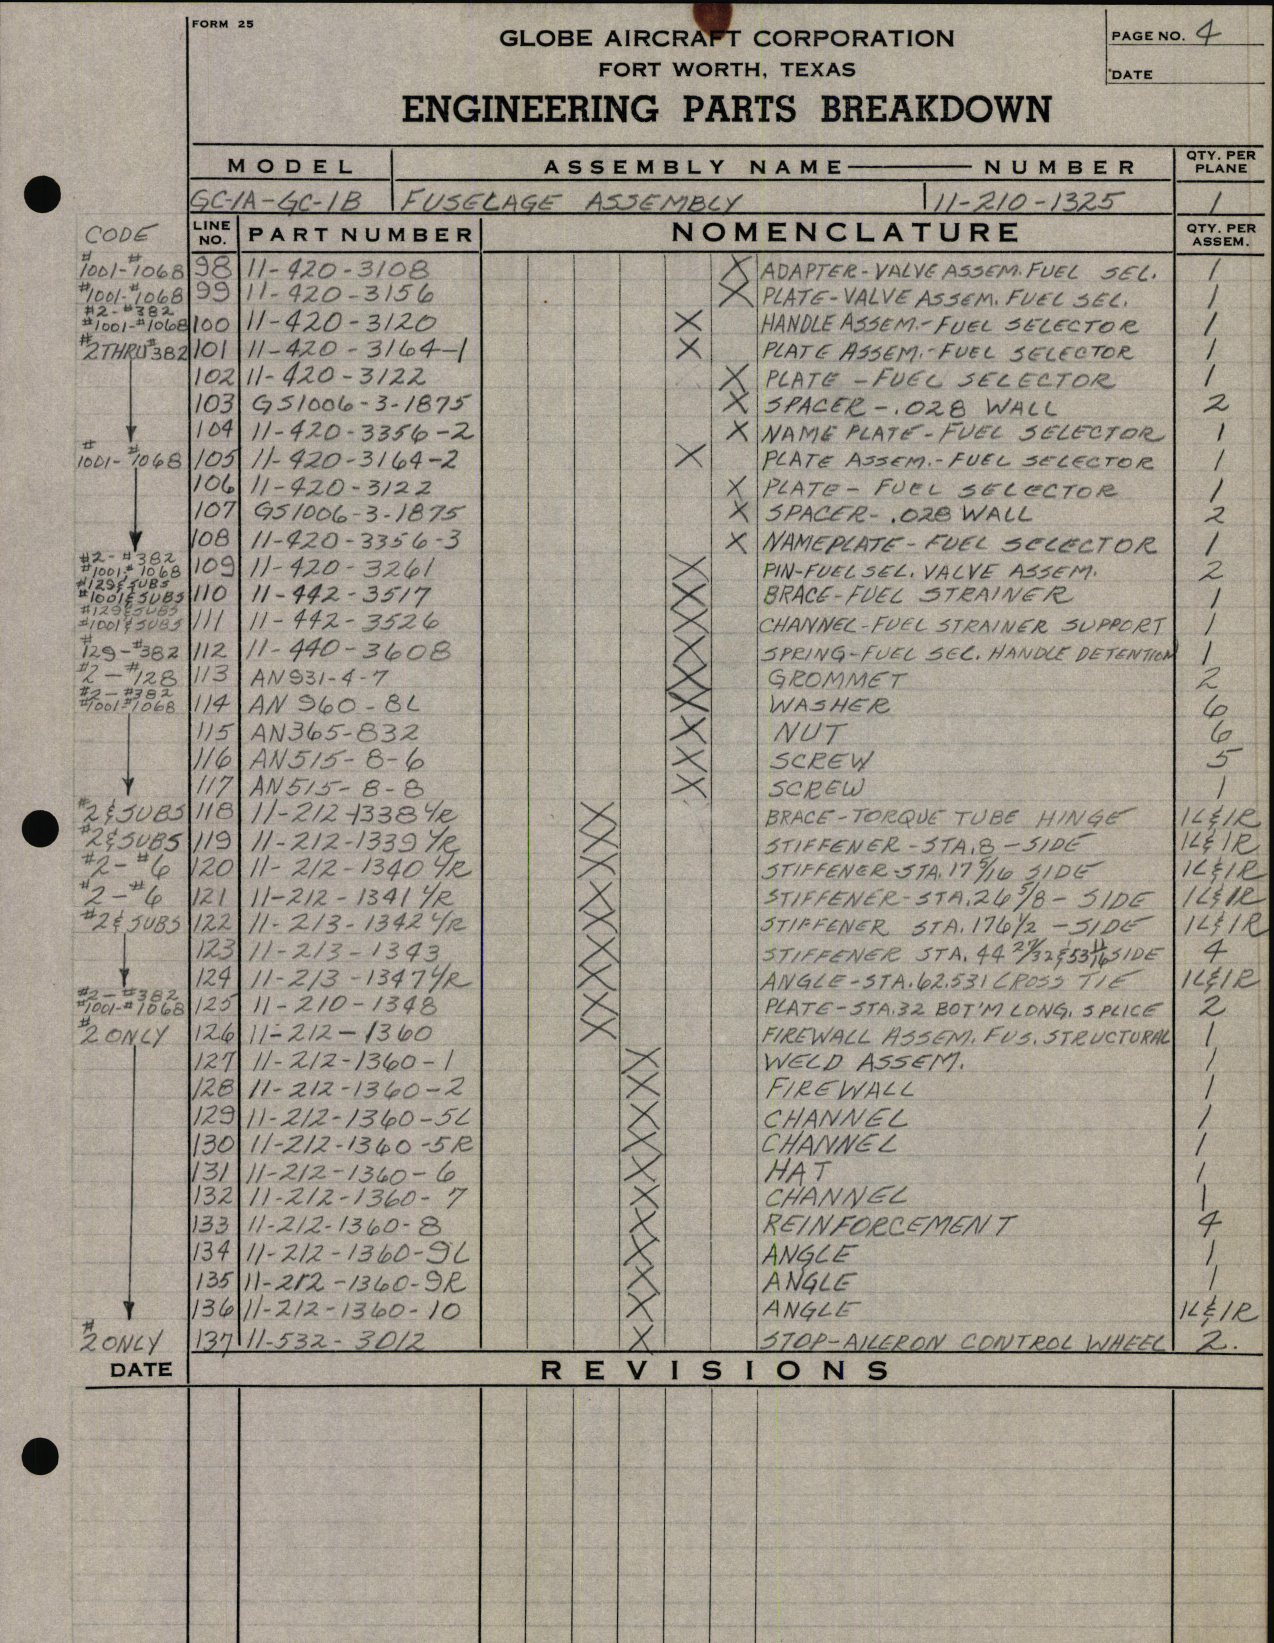 FORM 25
GLOBE AIRCRAFT CORPORATION
FORT WORTH, TEXAS
ENGINEERING PARTS BREAKDOWN
PAGE NO. 4
DATE
MODEL ASSEMBLY NAME — NUMBER QTY. PER PLANE
GC-1A-GC-1B FUSELAGE ASSEMBLY 11-210-1325 1
CODE LINE NO. PART NUMBER NOMENCLATURE QTY. PER ASSEM.
#1001-#1068 98 11-420-3108 X ADAPTER-VALVE ASSEM. FUEL SEL. 1
#1001-#1068 99 11-420-3156 X PLATE-VALVE ASSEM. FUEL SEL. 1
#2-#382 #1001-#1068 100 11-420-3120 X HANDLE ASSEM.-FUEL SELECTOR 1
#2 THRU #382 101 11-420-3164-1 X PLATE ASSEM.-FUEL SELECTOR 1
102 11-420-3122 X PLATE-FUEL SELECTOR 1
103 GS1006-3-1875 X SPACER-.028 WALL 2
104 11-420-3356-2 X NAME PLATE-FUEL SELECTOR 1
#1001-#1068 105 11-420-3164-2 X PLATE ASSEM.-FUEL SELECTOR 1
106 11-420-3122 X PLATE-FUEL SELECTOR 1
107 GS1006-3-1875 X SPACER-.028 WALL 2
108 11-420-3356-3 X NAMEPLATE-FUEL SELECTOR 1
#2-#382 #1001-#1068 109 11-420-3261 X PIN-FUEL SEL. VALVE ASSEM. 2
#129 & SUBS #1001 & SUBS 110 11-442-3517 X BRACE-FUEL STRAINER 1
#129 & SUBS #1001 & SUBS 111 11-442-3526 X CHANNEL-FUEL STRAINER SUPPORT 1
#129-#382 112 11-440-3608 X SPRING-FUEL SEL. HANDLE DETENTION 1
#2-#128 113 AN931-4-7 X GROMMET 2
#2-#382 #1001-#1068 114 AN960-8L X WASHER 6
115 AN365-832 X NUT 6
116 AN515-8-6 X SCREW 5
117 AN515-8-8 X SCREW 1
#2 & SUBS 118 11-212-1338 L/R X BRACE-TORQUE TUBE HINGE 1L & 1R
#2 & SUBS 119 11-212-1339 L/R X STIFFENER-STA. 8-SIDE 1L & 1R
#2-#6 120 11-212-1340 L/R X STIFFENER-STA. 17 5/16 SIDE 1L & 1R
#2-#6 121 11-212-1341 L/R X STIFFENER-STA. 26 5/8-SIDE 1L & 1R
#2 & SUBS 122 11-213-1342 L/R X STIFFENER STA. 176 1/2-SIDE 1L & 1R
123 11-213-1343 X STIFFENER STA. 44 27/32 & 53 11/16 SIDE 4
124 11-213-1347 L/R X ANGLE-STA. 62.531 CROSS TIE 1L & 1R
#2-#382 #1001-#1068 125 11-210-1348 X PLATE-STA. 32 BOT'M LONG. SPLICE 2
#2 ONLY 126 11-212-1360 X FIREWALL ASSEM. FUS. STRUCTURAL 1
127 11-212-1360-1 X WELD ASSEM. 1
128 11-212-1360-2 X FIREWALL 1
129 11-212-1360-5L X CHANNEL 1
130 11-212-1360-5R X CHANNEL 1
131 11-212-1360-6 X HAT 1
132 11-212-1360-7 X CHANNEL 1
133 11-212-1360-8 X REINFORCEMENT 4
134 11-212-1360-9L X ANGLE 1
135 11-212-1360-9R X ANGLE 1
136 11-212-1360-10 X ANGLE 1L & 1R
#2 ONLY 137 11-532-3012 X STOP-AILERON CONTROL WHEEL 2.
DATE REVISIONS